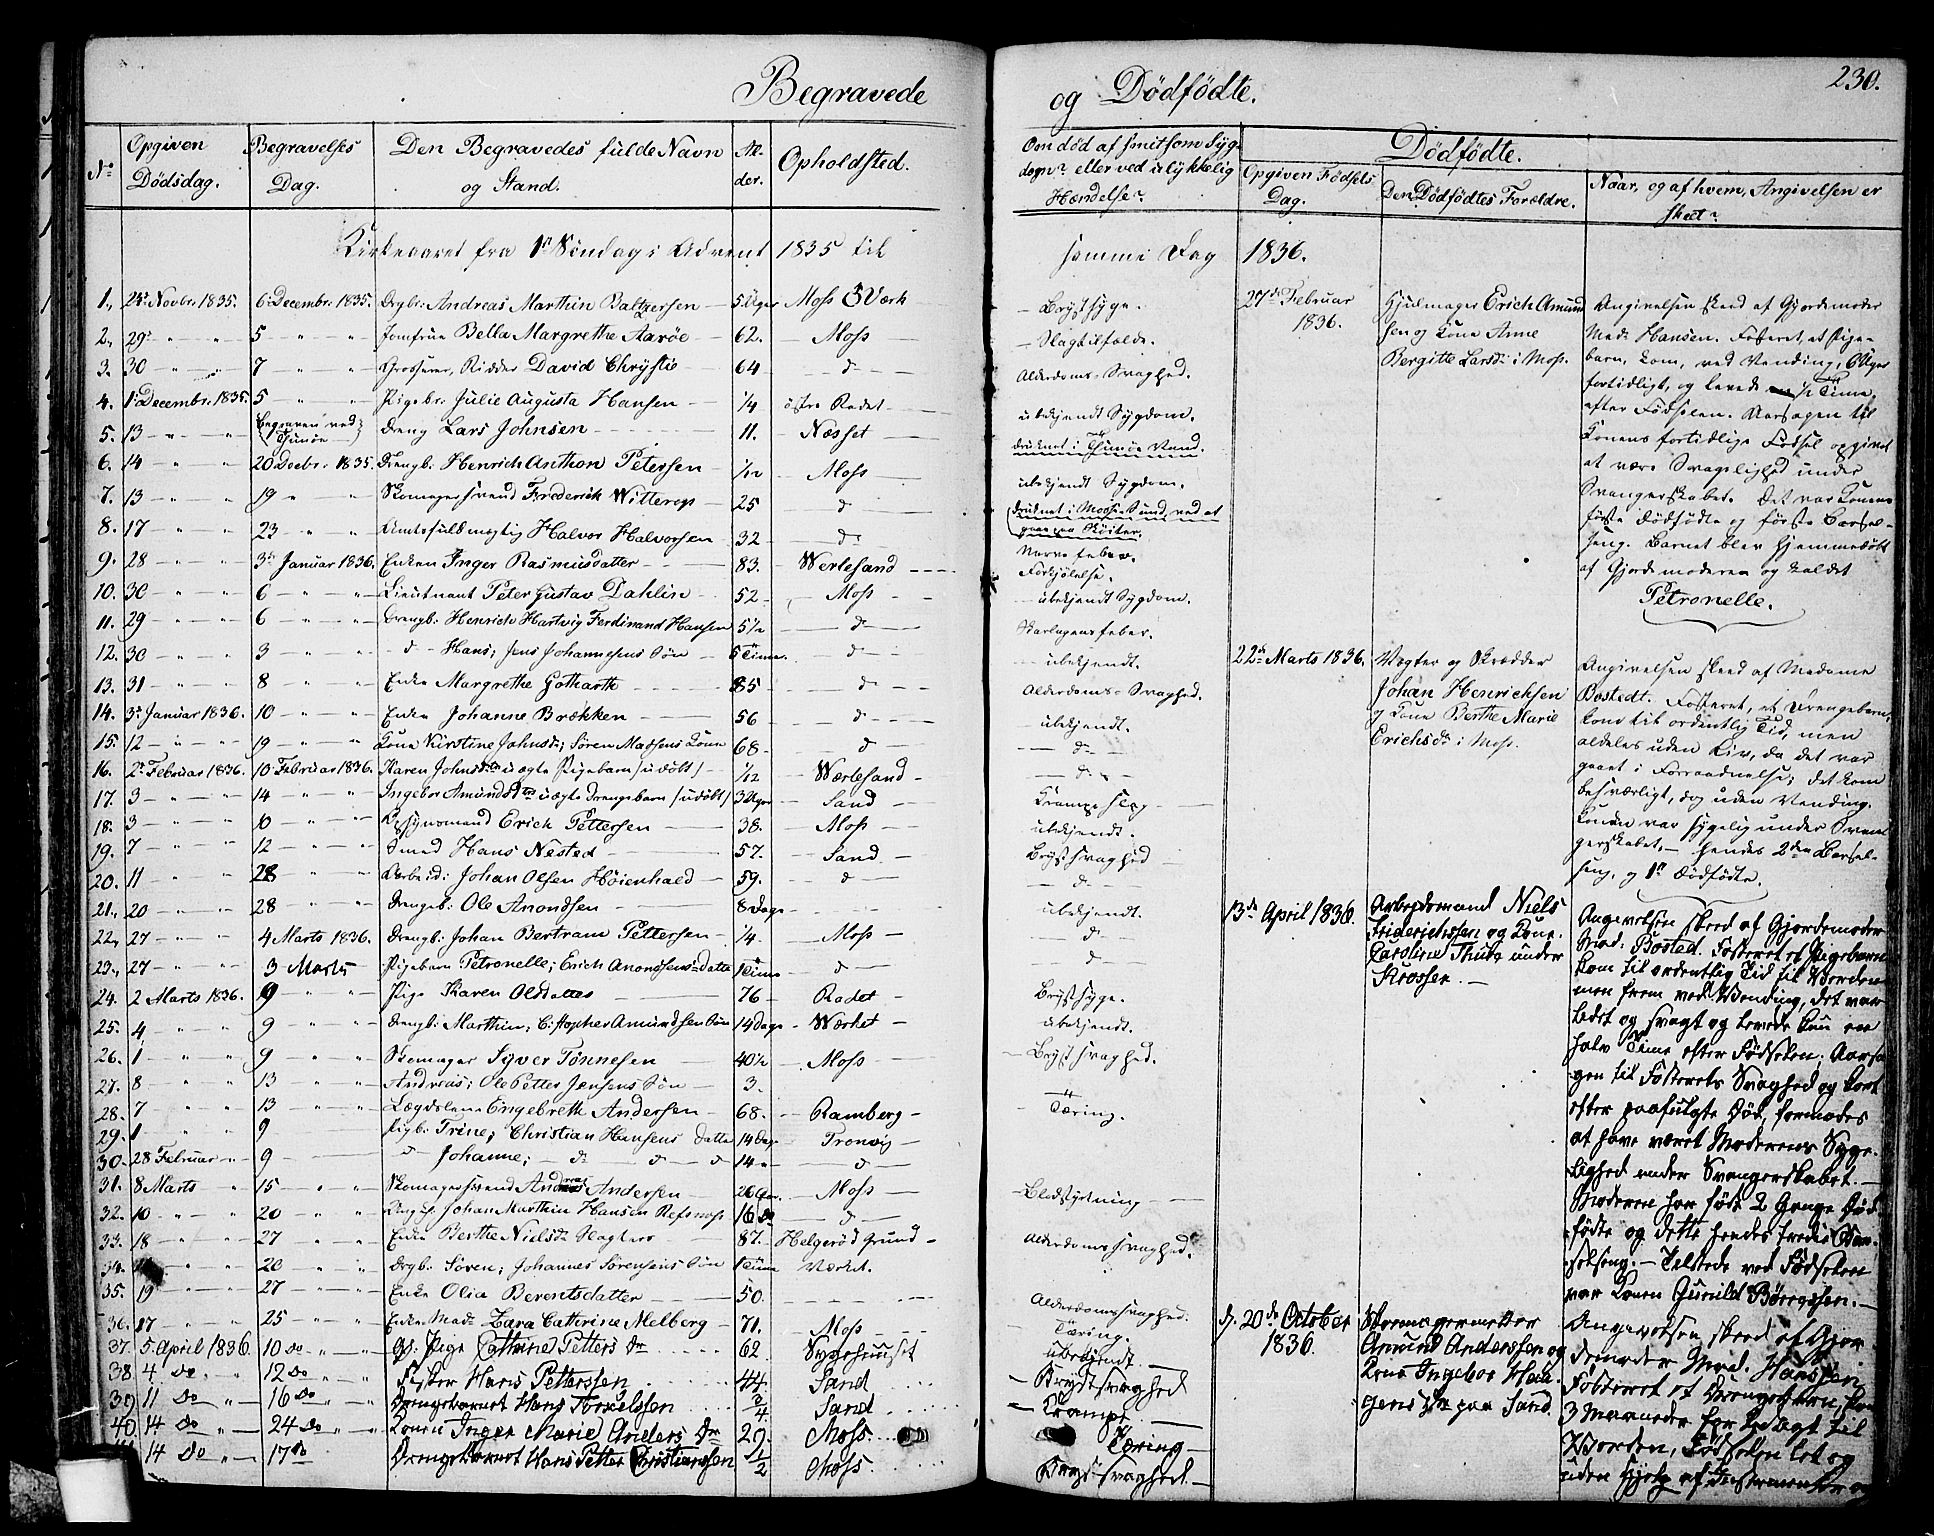 Begravede
og Dödfödte.
230.
No
Opgiven Dödsdag.
Begravelses Dag.
Den Begravedes fulde Navn og Stand.
Alder.
Opholdsted.
Om död af smitsom Sygdom? eller ved ulykkelig Hændelse?
Dödfödte.
Opgiven Födsels Dag.
Den Dödfödtes Forældre.
Naar, og af hvem, Angivelsen er skeet?
Kirkeaaret fra 1ste Söndag i Advent 1835 til samme Dag 1836.
1. 23 Novbr. 1835. 6 Decembr. 1835. Drgbr: Andreas Marthin Baltzersen 5 Uger Moss Værk Brystsyge.
2. 29 5 Jomfrue Bella Margrethe Aaröe 62. Moss Slagtilfælde.
3. 30 7 Grosserer, Ridder David Chrystie 64 d Alderdoms-Svaghed.
4. 1 Decembr. 1835. 5 Pigebr: Julie Augusta Hansen 1/4 östre Radet ubekjendt Sygdom.
5. 13 Begraven ved Dreng Lars Johnsen 11. Næsset
6. 14 20 Decbr. 1835. Drengb: Henrich Anthon Petersen 1/12 Moss ubekjendt Sygdom.
7. 13 19 Skomagersvend Frederick Witterop 25 d druknet i Mosse Sund, ved at gaae paa Sköiter.
8. 17 23 Amtsfuldmægtig Halvor Halvorsen 32 d Nervefeber.
9. 28 3 Januar 1836. Enken Inger Rasmusdatter 83. Werlesand Forkjölelse.
10. 30 6 Lieutnant Peter Gustav Dahlin 52 Moss ubekjendt Sygdom.
11. 29 6 Drengb: Henrich Hartvig Ferdinand Hansen 5 1/2 d Skarlagensfeber.
12. 30 3 d Hans; Jens Johannesens Sön 5 Time d ubekjendt.
13. 31 8 Enke Margrethe Gotharth 85 d Alderdoms-Svaghed.
14. 3 Januar 1836. 10 Enken Johanne Brækken 56 d ubekjendt.
15. 12 19 Kone Kirstine Johnsd; Sören Madsens Kone 68 d d
16. 2 Februar 1836. 10 Februar 1836. Karen Johnsd uægte Pigebarn (udöbt) 1/12 Wærlesand d
17. 3 14 Ingebor Amundsd uægte Drengebarn (udöbt) 3 Uger Sand Krampe
18. 3 10 Erich Pettersen 38. Moss ubekjendt.
19. 7 12 Smed Hans Nested 57. Sand Brystsvaghed
20. 11 28 Arbeid: Johan Olsen Höienhald 59. d d
21. 20 28 Drengeb: Ole Anondsen 8 Dage ubekjendt.
22. 27 4 Marts 1836. Drengb: Johan Bertram Pettersen 1/4. Moss d
23. 27 3 Marts Pigebarn Petronelle; Erich Anonssens Datte 1 Time d d
24. 2 Marts 1836. 9 Pige Karen Olsdatter 76 Radet Brystsyge.
25. 4 9 Drengb: Marthin; Christopher Amundsen Sön 14 Dage Wærket ubekjendt.
26. 1 9 Skomager Syver Tönnesen 40 1/2 Moss Brystsvaghed.
27. 8 13 Andreas; Ole Petter Jensens Sön 3.
28. 7 13 Lægdslem Engebreth Andersen 68. Ramberg Tæring.
29. 1 9 Pigb: Trine; Christian Hansens Datte 14 Dage Tronvig
30. 28 Februar 9 d Johanne; d d d 14 d
31. 8 Marts 15 Skomagersvend Andreas Andersen 26 Moss Blodstyrtning
32. 10 20 Johan Marthin Hansen Refsnæss 16 d
33. 18 27 Enke Berthe Nielsd 87. Helgeröd grund Alderdomssvaghed.
34. 20 Drgb: Sören; Johannes Sörensens Sön 1 Time Værket.
35. 19 27 Enke Olia Berentsdatter 50.
36. 17 25 Enke Mad: Zara Cathrina Melberg 71. Moss Alderdomssvaghed.
37. 5 April 1836. 10 Do Pige Cathrine Petters Dr 62. Sygehuuset Tæring.
38. 4 Do 12 Do Fisker Hans Petterssen 44. Sand ubekjendt.
39. 11 Do 16 Do Drengebarnet Hans Axelssen 3/4. Sand Brystsvaghed
40. 14 Do 24 Do Konen Inger Marie Anders Dr 29. Moss. Krampe
14 Do 17 Do Drengebarnet Hans Petter Christianssen 1/2 Moss. Tæring
Brystsvaghed.
27de Februar 1836.
Hjulmager Erich Amundsen og Kone Anne
Bergitte Larsd: i Moss.
Angivelsen skeed af Gjordemoder
Mad: Hansen. Fosteret, et Pigebarn, kom, ved Vending,
fortidligt, og levede 1/2 Time
efter Födselen. Aarsagen til
Konens fortidlige Födsel opgivet
at være Svagelighed under
Svangerskabet. Det var Konens
förste Dödfödte og förste Barselseng. Barnet blev hjemmedöbt
af Gjordemoderen og kaldet
Petronelle.
22de Marts 1836.
Vægter og Skrædder
Johan Henrichsen
og Kone Berthe Marie
Erichsd: i Moss.
Angivelsen skeed af Madame
Bostedt. Fosteret, et Drengebarn,
kom til ordentlig Tid, men
aldeles uden Liv, da det var
gaaet i Forraadnelse; det kom
besværligt, dog uden Vending.
Konen var sygelig under Svangerskabet. — hendes 2den Barselseng, og 1ste Dödfödte.
13de April 1836.
Arbeidsmand Niels
Friderichssen og Kone
Caroline Thutz under
Krossen.
Angivelsen skeed af Gjordemoder
Mad: Bosted. Fosteret et Pigebarn
kom til ordentlig Tid til Verden
men frem ved Vending, det var
lidet og svagt og levede kun en
halv Time efter Födselen. Aarsagen til Fosterets Svaghed og kort
efter paafulgte Död, formodes
at have været Moderens Sygelighed under Svangerskabet. —
Moderen har födt 2 Gange Dödfödte og dette hendes tredie Barselseng. — Tilstede ved Födselen
var Konen Gunild Börressen. —
20de October 1836.
Skomagermester
Amund Anderssen og
Kone Ingebor Haagens Dr paa Sand.
Angivelsen skeed af Gjordemoder Mad. Hanssen
Fosteret et Drengebarn, kom
3 Maaneder for tidligt til
Verden, Födselen let og
uden Hjelp af Instrumenter og